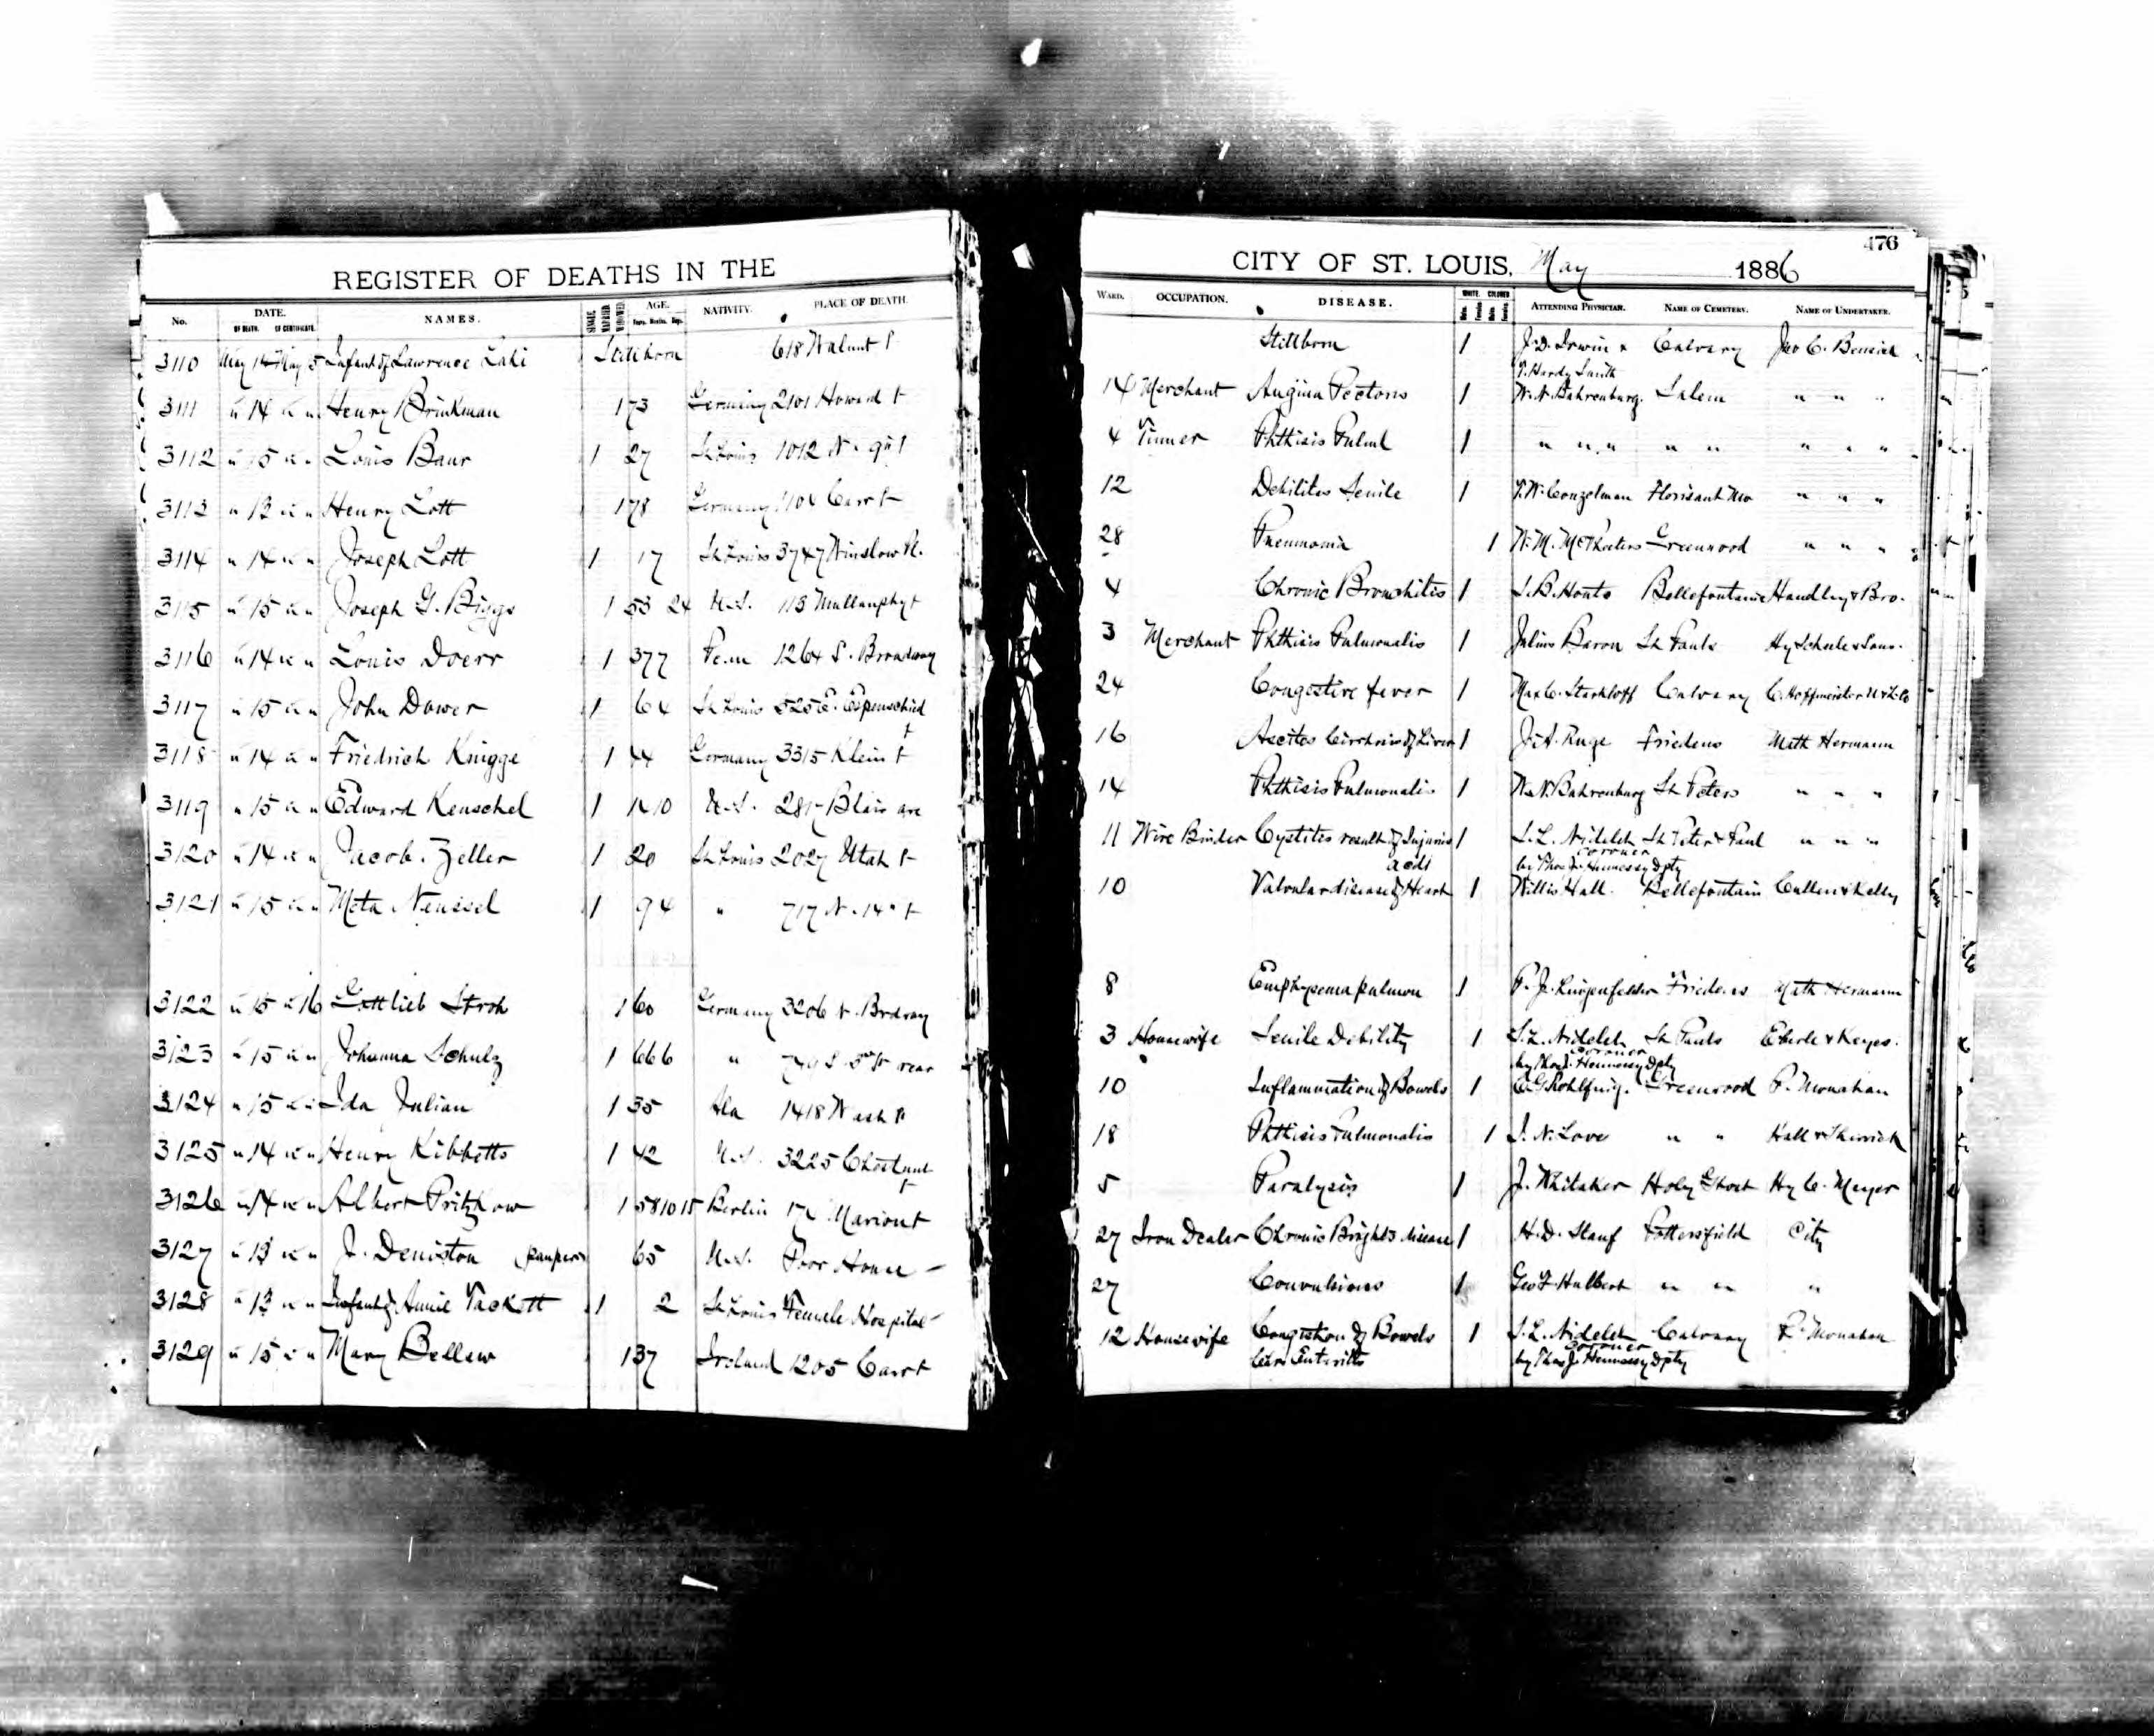 REGISTER OF DEATHS IN THE
No. DATE. OF DEATH. OF CERTIFICATE. NAMES. SINGLE MARRIED WIDOWED AGE. Years. Months. Days. NATIVITY. PLACE OF DEATH.
3110 May 14 May 15 Infant of Lawrence Stillborn 618 Walnut St
3111 " 14 " " Henry Brinkman 1 73 Germany 2101 Howard St
3112 " 15 " " Louis Baur 1 27 St Louis 1012 N. 9th St
3113 " 13 " " Henry Lott 1 78 Germany Carr St
3114 " 14 " " Joseph Lott 1 17 St Louis 3747 Winslow Pl.
3115 " 15 " " Joseph G. Biggs 1 53 24 U.S. 113 Mullanphy St
3116 " 14 " " Louis Doerr 1 37 7 Penn 1264 S. Broadway
3117 " 15 " " John Dower 1 6 4 St Louis 525 E. Espenschied St
3118 " 14 " " Friedrich Knigge 1 44 Germany 3315 Klein St
3119 " 15 " " Edward Kenschel 1 U.S. Blair ave
3120 " 14 " " Jacob Zeller 1 20 St Louis 2027 Utah St
3121 " 15 " " Meta Neussel 1 9 4 " 717 N. 14th St
3122 " 15 " 16 Gottlieb Stroh 1 60 Germany 3206 N. Brdway
3123 " 15 " " Johanna Schulz 1 66 6 " S. 3rd St rear
3124 " 15 " " Ida Julian 1 35 Ala 1418 Wash St
3125 " 14 " " Henry Kibbetts 1 42 U.S. 3225 Chestnut St
3126 " 14 " " Albert Pritzkow 1 58 10 15 Berlin Marion St
3127 " 13 " " J. Deniston (pauper) 65 U.S. Poor House
3128 " 13 " " Infant of Annie Tackett 1 2 St Louis Female Hospital
3129 " 15 " " Mary Bellew 1 37 Ireland 1205 Carr St
476
CITY OF ST. LOUIS, May 1886
WARD. OCCUPATION. DISEASE. WHITE. COLORED Males. Females Males Females ATTENDING PHYSICIAN. NAME OF CEMETERY. NAME OF UNDERTAKER.
Stillborn 1 J.D. Irwin & Calvary Jno C. Bensiek
T. Hardy Smith
14 Merchant Angina Pectoris 1 W.N. Bahrenburg. Salem " " "
4 Tinner Phthisis Pulml 1 " " " " " " " "
12 Debilitas Senile 1 T.W. Conzelman Florisant Mo " " "
28 Pneumonia 1 W.M. McPheeters Greenwood " " "
4 Chronic Bronchitis 1 Bellefontaine Handley & Bro.
3 Merchant Phthisis Pulmonalis 1 Julius Baron St Pauls Hy Scheele & Sons.
24 Congestive fever 1 Max C. Starkloff Calvary C. Hoffmeister U & L Co
16 Ascites Cirrhosis of Liver 1 Ruge Friedens Math Hermann
14 Phthisis Pulmonalis 1 W.N. Bahrenburg St Peters " " "
11 Wire Binder Cystites result of Injuries 1 S.L. Nidelet St Peter & Paul " " "
acdt Coroner
by Thos J. Hennessy Dpty
10 Valvular disease of Heart 1 Willis Hall. Bellefontain Cullen & Kelly
8 Emphysema pulmon 1 P.J. Lingenfelder Friedens Math Hermann
3 Housewife Senile Debility 1 S.L. Nidelet St Pauls Eberle & Keyes.
Coroner
by Thos J. Hennessy Dpty
10 Inflammation of Bowels 1 Greenwood P. Monahan
18 Phthisis Pulmonalis 1 I.N. Love " "
5 Paralysis 1 J. Whitaker Holy Ghost Hy C. Meyer
27 Iron Dealer Chronic Brights disease 1 H.D. Pottersfield City
27 Convulsions 1 Geo F. Hulbert " " "
12 Housewife Congestion of Bowels 1 S.L. Nidelet Calvary P. Monahan
Enteritis Coroner
by Thos J. Hennessy Dpty